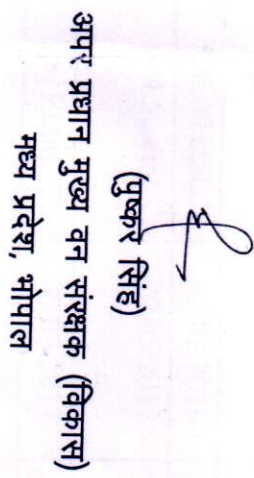 (पुष्कर सिंह)
अपर प्रधान मुख्य वन संरक्षक (विकास)
मध्य प्रदेश, भोपाल